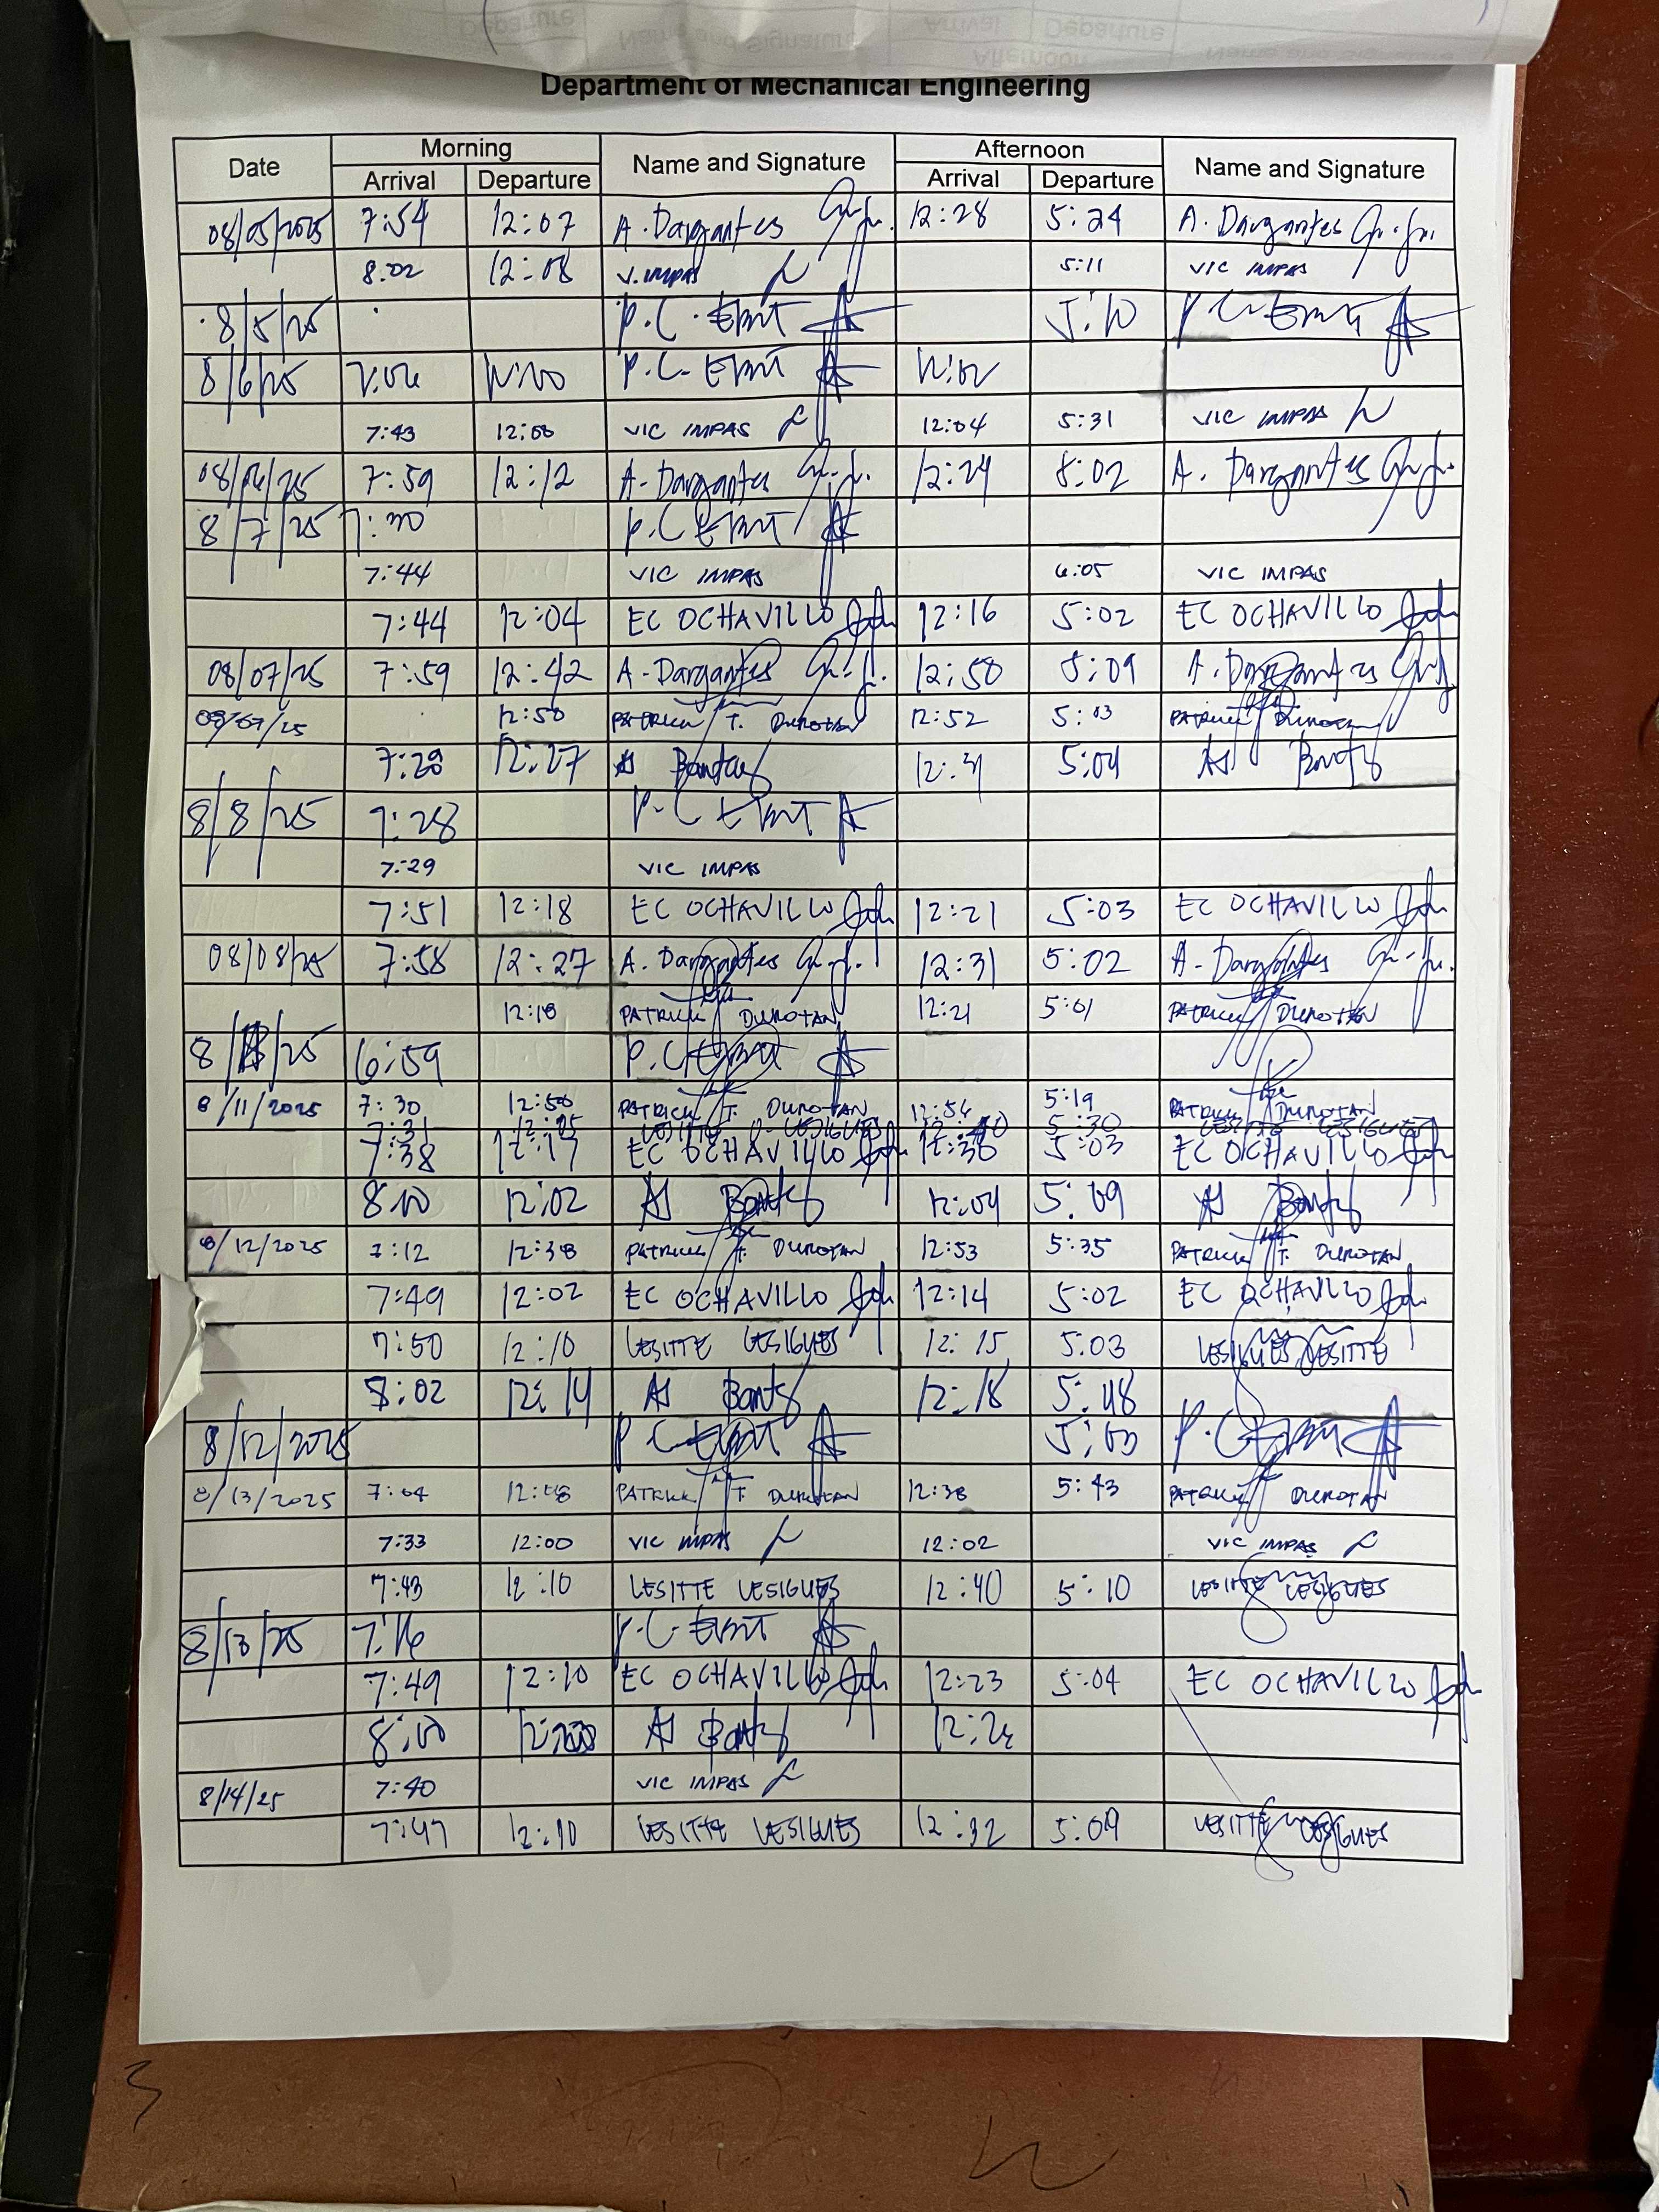 Department of Mechanical Engineering
Date Morning Name and Signature Afternoon Name and Signature
Arrival Departure Arrival Departure
08/05/2025 7:54 12:07 A. Dargantes 12:28 5:24 A. Dargantes
8:02 12:08 V. IMPAS 5:11 VIC IMPAS
8/5/25 P.C. 5:10 P.C.
8/6/25 P.C.
7:43 12:00 VIC IMPAS 12:04 5:31 VIC IMPAS
08/06/25 7:59 12:12 A. Dargantes 12:24 8:02 A. Dargantes
8/7/25 7:30 P.C.
7:44 VIC IMPAS 6:05 VIC IMPAS
7:44 12:04 EC OCHAVILLO 12:16 5:02 EC OCHAVILLO
08/07/25 7:59 12:42 A. Dargantes 12:50 5:09 A. Dargantes
08/07/25 12:50 PATRICK T. DUROTAN 12:52 5:03 PATRICK DUROTAN
7:28 12:27 AJ 12:31 5:04 AJ
8/8/25 7:28 P.C.
7:29 VIC IMPAS
7:51 12:18 EC OCHAVILLO 12:21 5:03 EC OCHAVILLO
08/08/25 7:58 12:27 A. Dargantes 12:31 5:02 A. Dargantes
12:18 PATRICK DUROTAN 12:21 5:01 PATRICK DUROTAN
6:59 P.C.
8/11/2025 7:30 12:50 PATRICK T. DUROTAN 12:54 5:19 PATRICK DUROTAN
7:31 5:30
7:38 12:17 EC OCHAVILLO 12:38 5:03 EC OCHAVILLO
8:00 12:02 AJ 12:04 5:09 AJ
8/12/2025 7:12 12:38 PATRICK T. DUROTAN 12:53 5:35 PATRICK T. DUROTAN
7:49 12:02 EC OCHAVILLO 12:14 5:02 EC OCHAVILLO
7:50 12:10 LESITTE LESIGUES 12:15 5:03 LESIGUES LESITTE
8:02 12:14 AJ 12:18 5:48 AJ
8/12/2025 P.C. 5:00 P.C.
8/13/2025 7:04 PATRICK T. DUROTAN 12:38 5:43 PATRICK DUROTAN
7:33 12:00 VIC IMPAS 12:02 VIC IMPAS
7:43 12:10 LESITTE LESIGUES 12:40 5:10 LESITTE LESIGUES
8/13/25 7:16 P.C.
7:49 12:10 EC OCHAVILLO 12:23 5:04 EC OCHAVILLO
8:00 AJ
8/14/25 7:40 VIC IMPAS
7:47 12:10 LESITTE LESIGUES 12:32 5:09 LESITTE LESIGUES